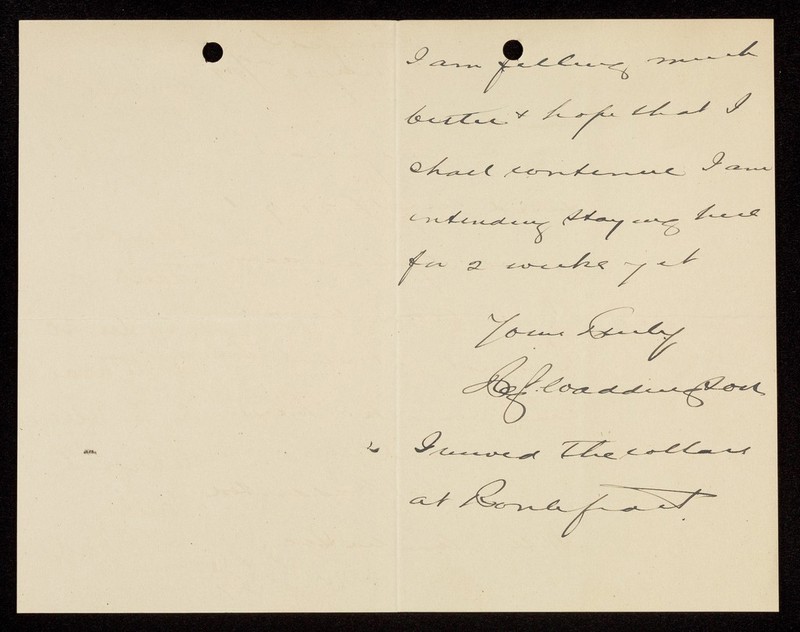 I am feeling much
better & hope that I
shall continue I am
intending staying here
for 2 weeks yet
Yours Truly
Waddington
I the collars
at